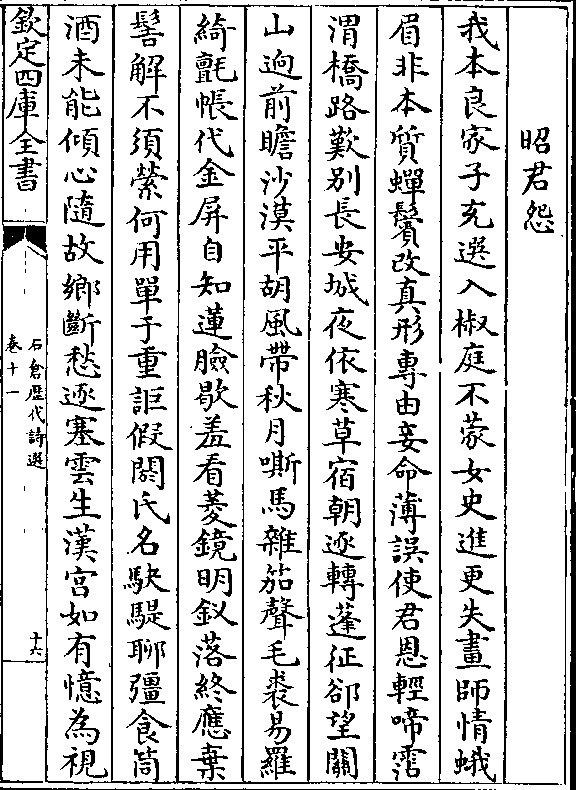 昭君怨
我本良家子充選入椒庭不蒙女史進更失畫師情蛾
眉非本質蟬鬢改真形專由妾命薄誤使君恩輕啼霑
渭橋路歎別長安城夜依寒草宿朝逐轉蓬征郤望關
山逈前瞻沙漠平胡風帶秋月嘶馬雜笳聲毛裘易羅
綺氊帳代金屏自知蓮臉歇羞看菱鏡明釵落終應棄
髻解不須縈何用單于重詎假閼氏名駃騠聊彊食筒
酒未能傾心隨故鄉斷愁逐塞雲生漢宫如有憶為視
欽定四庫全書
石倉歴代詩選
卷十一
十六